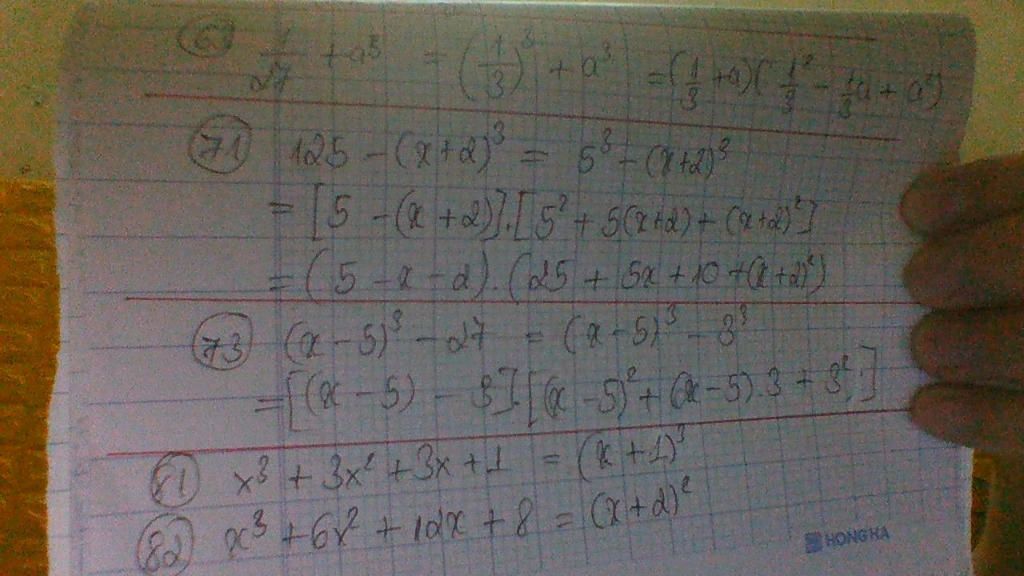 6) 1/27 + a³ = (1/3)³ + a³ = (1/3 + a)(1/3² - 1/3a + a²)
71 125 - (x+2)³ = 5³ - (x+2)³
= [5 - (x+2)].[5² + 5(x+2) + (x+2)²]
= (5 - x - 2).(25 + 5x + 10 + (x+2)²)
73 (x - 5)³ - 27 = (x - 5)³ - 3³
= [(x - 5) - 3].[(x - 5)² + (x - 5).3 + 3².]
81 x³ + 3x² + 3x + 1 = (x + 1)³
82 x³ + 6x² + 12x + 8 = (x + 2)²
HONG HA